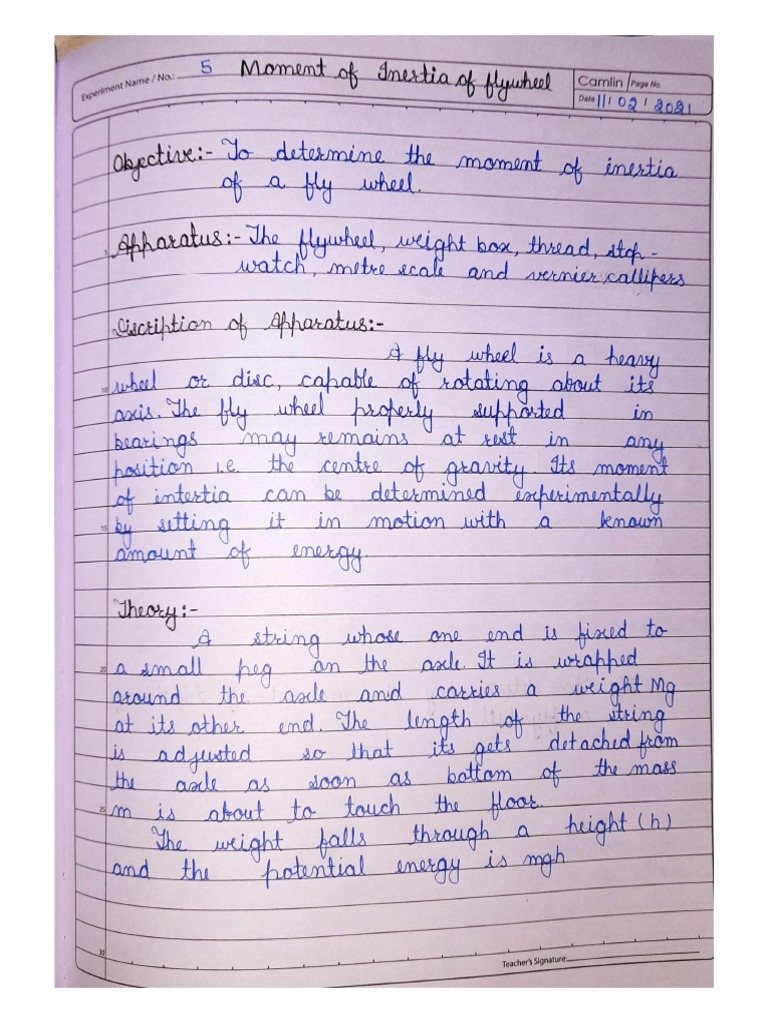 Experiment Name / No.: 5 Moment of Inertia of flywheel
Camlin Page No.
Date 11/02/2021
Objective:- To determine the moment of inertia
of a fly wheel.
Apparatus:- The flywheel, weight box, thread, stop-
watch, metre scale and vernier callipers
Discription of Apparatus:-
A fly wheel is a heavy
10 wheel or disc, capable of rotating about its
axis. The fly wheel properly supported in
bearings may remains at rest in any
position i.e. the centre of gravity. Its moment
of intertia can be determined experimentally
15 by setting it in motion with a known
amount of energy.
Theory:-
A string whose one end is fixed to
20 a small peg on the axle. It is wrapped
around the axle and carries a weight Mg
at its other end. The length of the string
is adjusted so that its gets detached from
the axle as soon as bottom of the mass
25 m is about to touch the floor.
The weight falls through a height (h)
and the potential energy is mgh
30
Teacher's Signature: